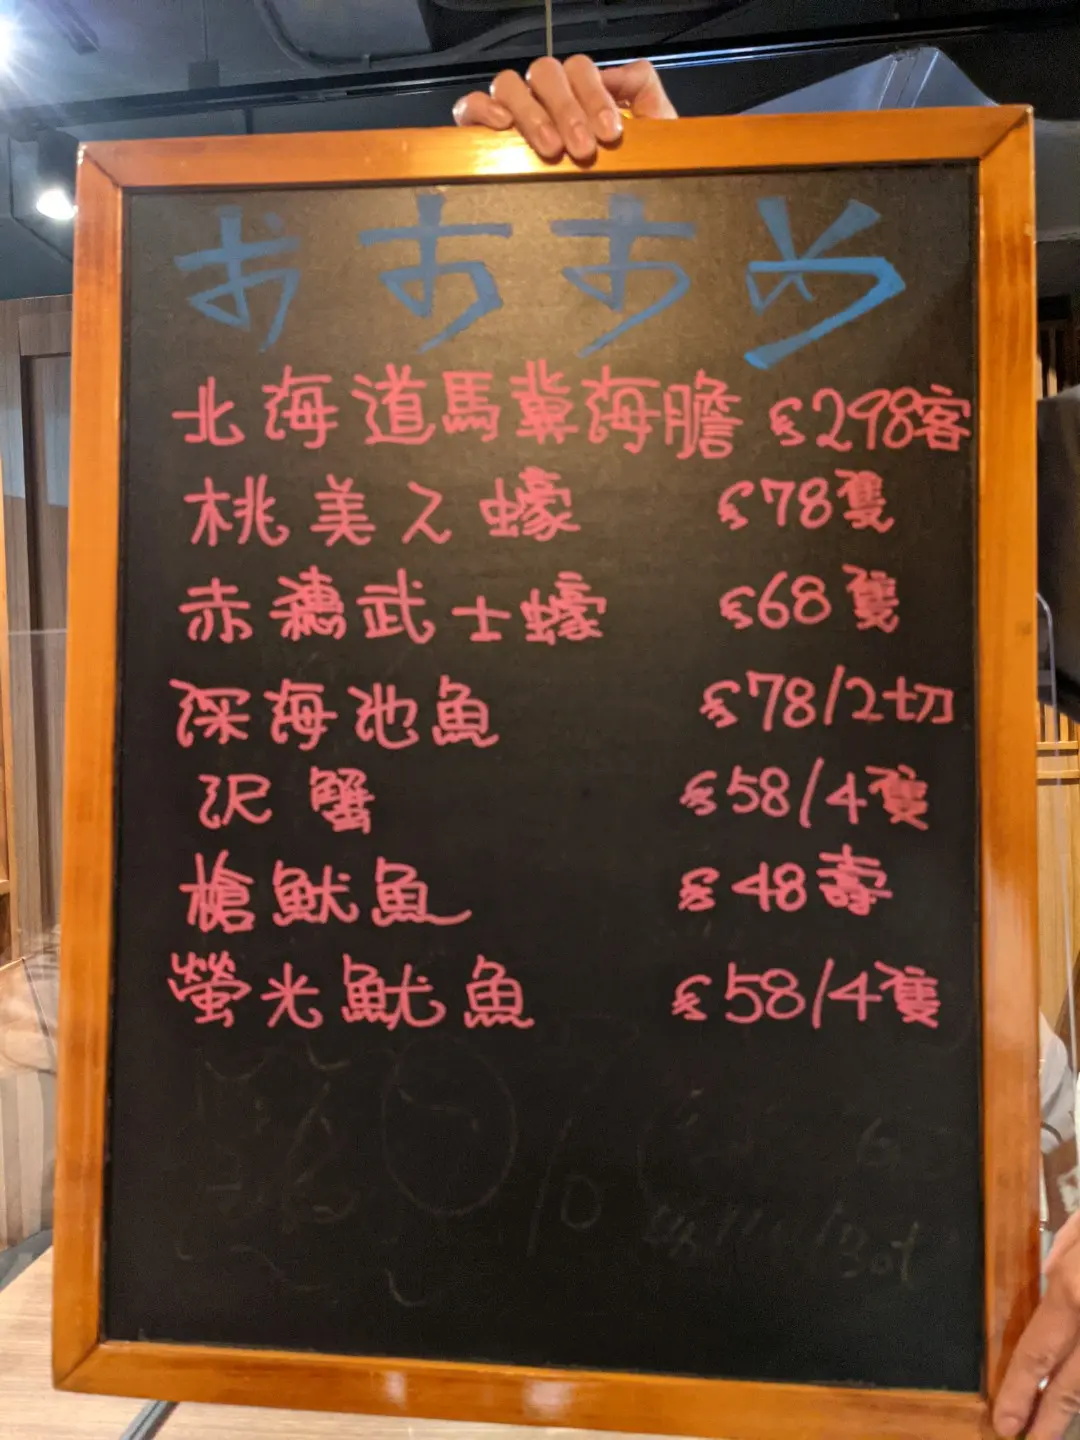 おすすめ
北海道馬糞海膽 $298客
桃美人蠔 $78隻
赤穗武士蠔 $68隻
深海池魚 $78/2切
沢蟹 $58/4隻
槍魷魚 $48壽
螢光魷魚 $58/4隻